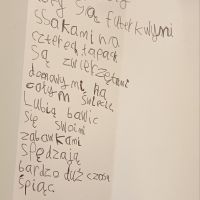 są futerkwymi
ssakami na
czterech łapach
są zwierzętami
domowymi na
całym świecie
Lubią bawic
się swoimi
zabawkami
spędzają
bardzo duż czasu
śpiąc